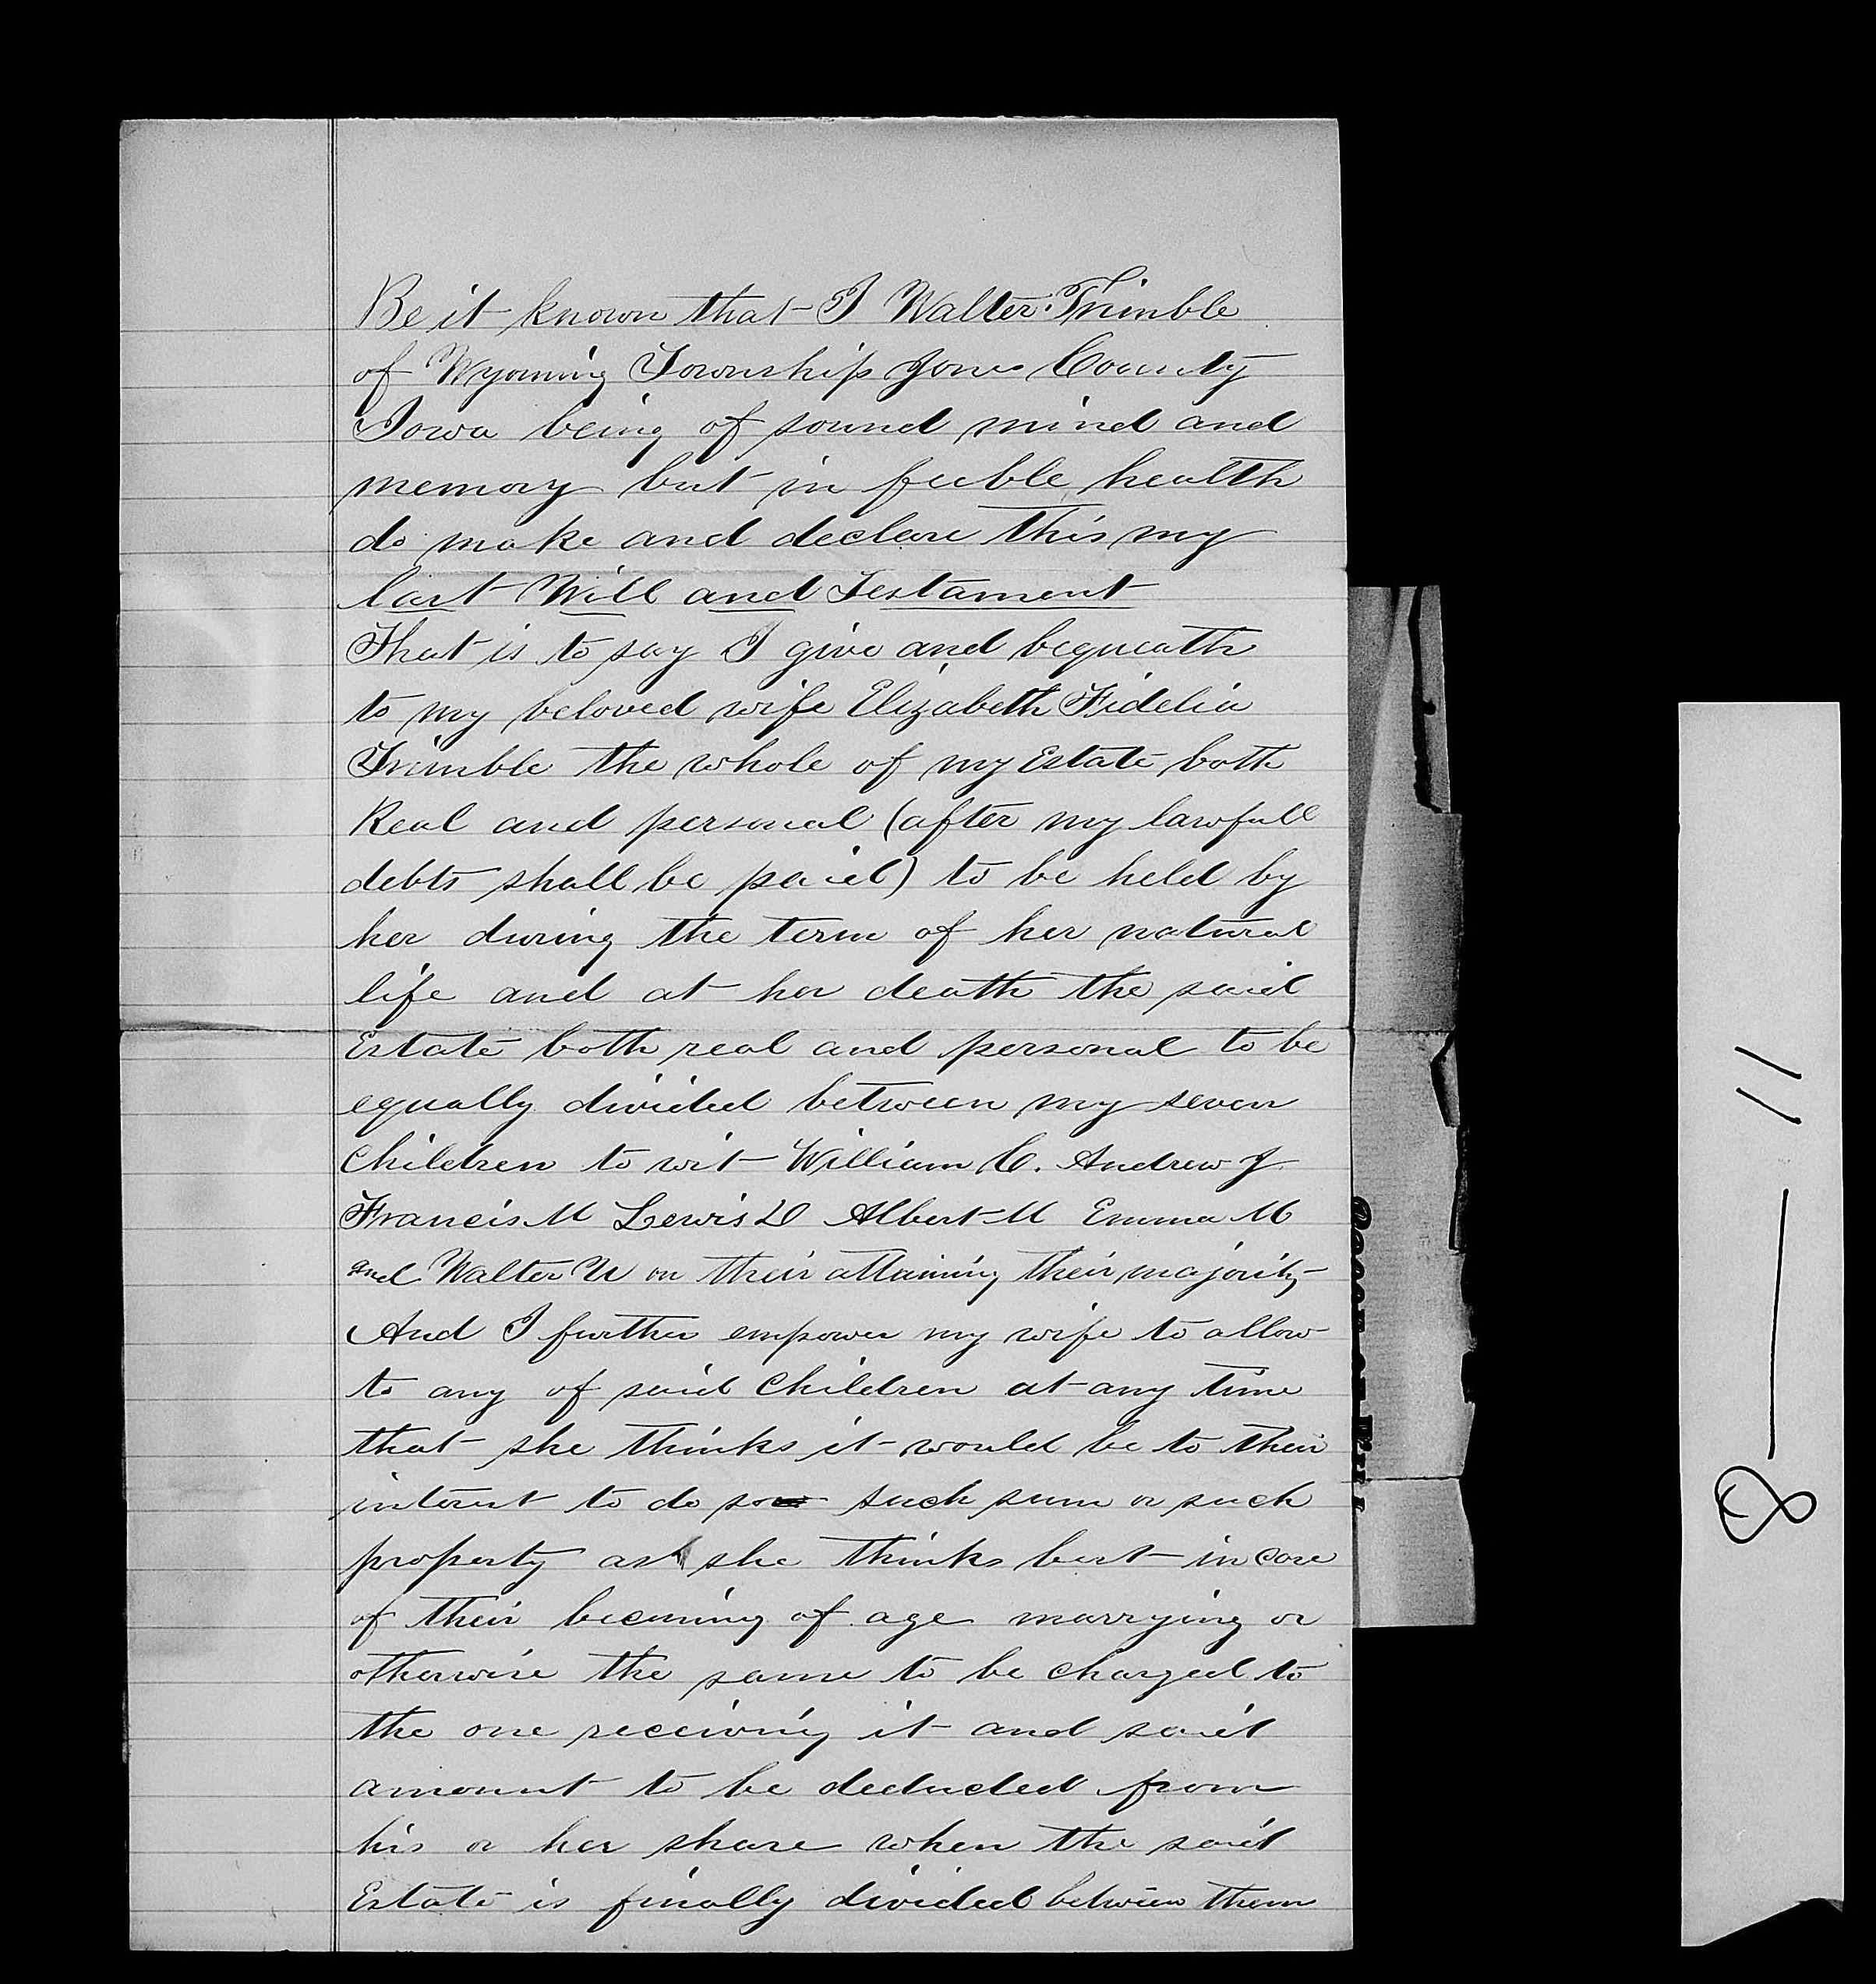 Be it known that I Walter Trimble
of Wyoming Township Jones County
Iowa being of sound mind and
memory but in feeble health
do make and declare this my
last Will and Testament
That is to say I give and bequeath
to my beloved wife Elizabeth Fidelia
Trimble the whole of my Estate both
Real and personal (after my lawfull
debts shall be paid) to be held by
her during the term of her natural
life and at her death the said
Estate both real and personal to be
equally divided between my seven
Children to wit William C. Andrew J
Francis M Lewis D Albert M Emma M
and Walter W on their attaining their majority
And I further empower my wife to allow
to any of said Children at any time
that she thinks it would be to their
interest to do so such sum or such
property as she thinks best in case
of their becoming of age marrying or
otherwise the same to be charged to
the one receiving it and said
amount to be deducted from
his or her share when the said
Estate is finally divided between them
8 — 11